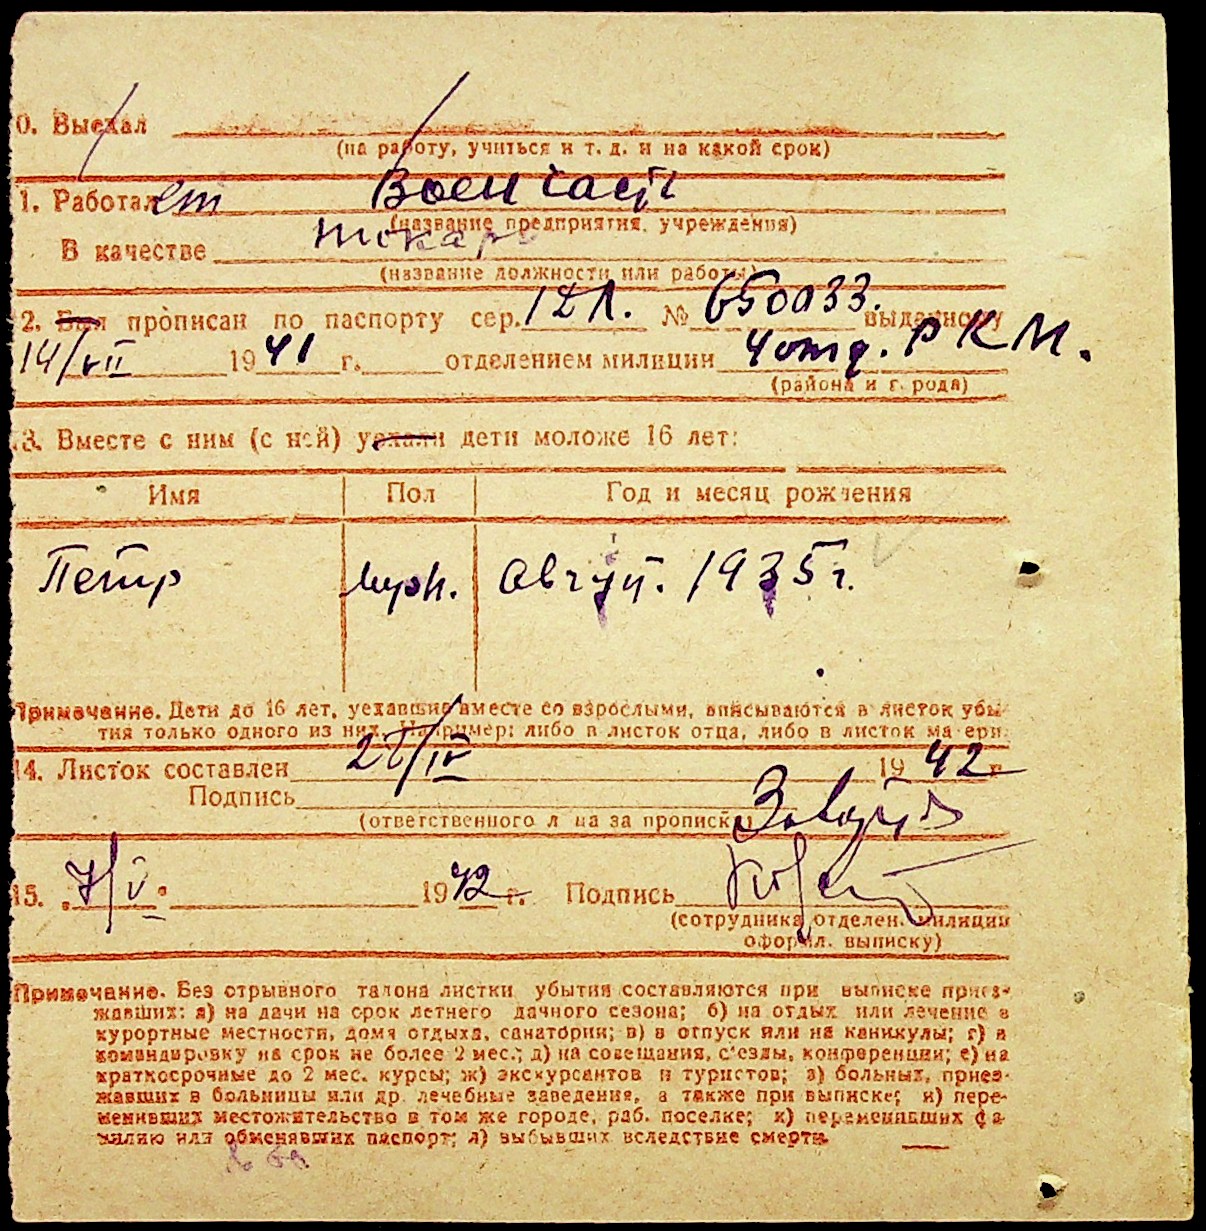 0. Выехал
(на работу, учиться и т. д. и на какой срок)
1. Работает Воен части
(название предприятия, учреждения)
В качестве токаря
(название должности или работы)
2. Был прописан по паспорту сер. I ДЛ. № 650033. выданному
14/VII 1941 г. отделением милиции 4 отд. Р К М.
(района и города)
13. Вместе с ним (с ней) уехали дети моложе 16 лет:
Имя Пол Год и месяц рождения
Петр муж. Август. 1935 г.
Примечание. Дети до 16 лет, уехавшие вместе со взрослыми, вписываются в листок убы-
тия только одного из них. Например: либо в листок отца, либо в листок матери.
14. Листок составлен /IV 1942 г.
Подпись
(ответственного лица за прописку)
15. 7/V 1942 г. Подпись
(сотрудника отделен. милиции
оформл. выписку)
Примечание. Без отрывного талона листки убытия составляются при выписке приез-
жавших: а) на дачи на срок летнего дачного сезона; б) на отдых или лечение в
курортные местности, дома отдыха, санатории; в) в отпуск или на каникулы; г) в
командировку на срок не более 2 мес.; д) на совещания, с'езды, конференции; е) на
краткосрочные до 2 мес. курсы; ж) экскурсантов и туристов; з) больных, приез-
жавших в больницы или др. лечебные заведения, а также при выписке; и) пере-
менивших местожительство в том же городе, раб. поселке; к) переменивших фа-
милию или обменявших паспорт; л) выбывших вследствие смерти.